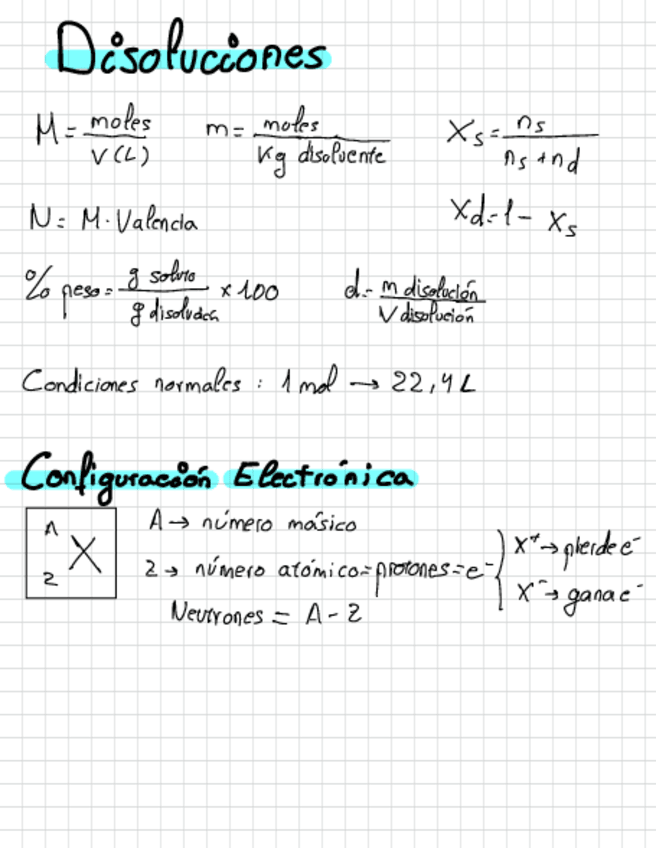 Disoluciones
M = moles / V (L)    m = moles / Kg disolvente    Xs = ns / ns + nd
N = M · Valencia    Xd = 1 - Xs
% peso = g soluto / g disolución x 100    d = m disolución / V disolución
Condiciones normales : 1 mol → 22,4 L
Configuración Electrónica
A
X
Z
A → número másico
Z → número atómico = protones = e⁻
X⁺ → pierde e⁻
X⁻ → gana e⁻
Neutrones = A - Z